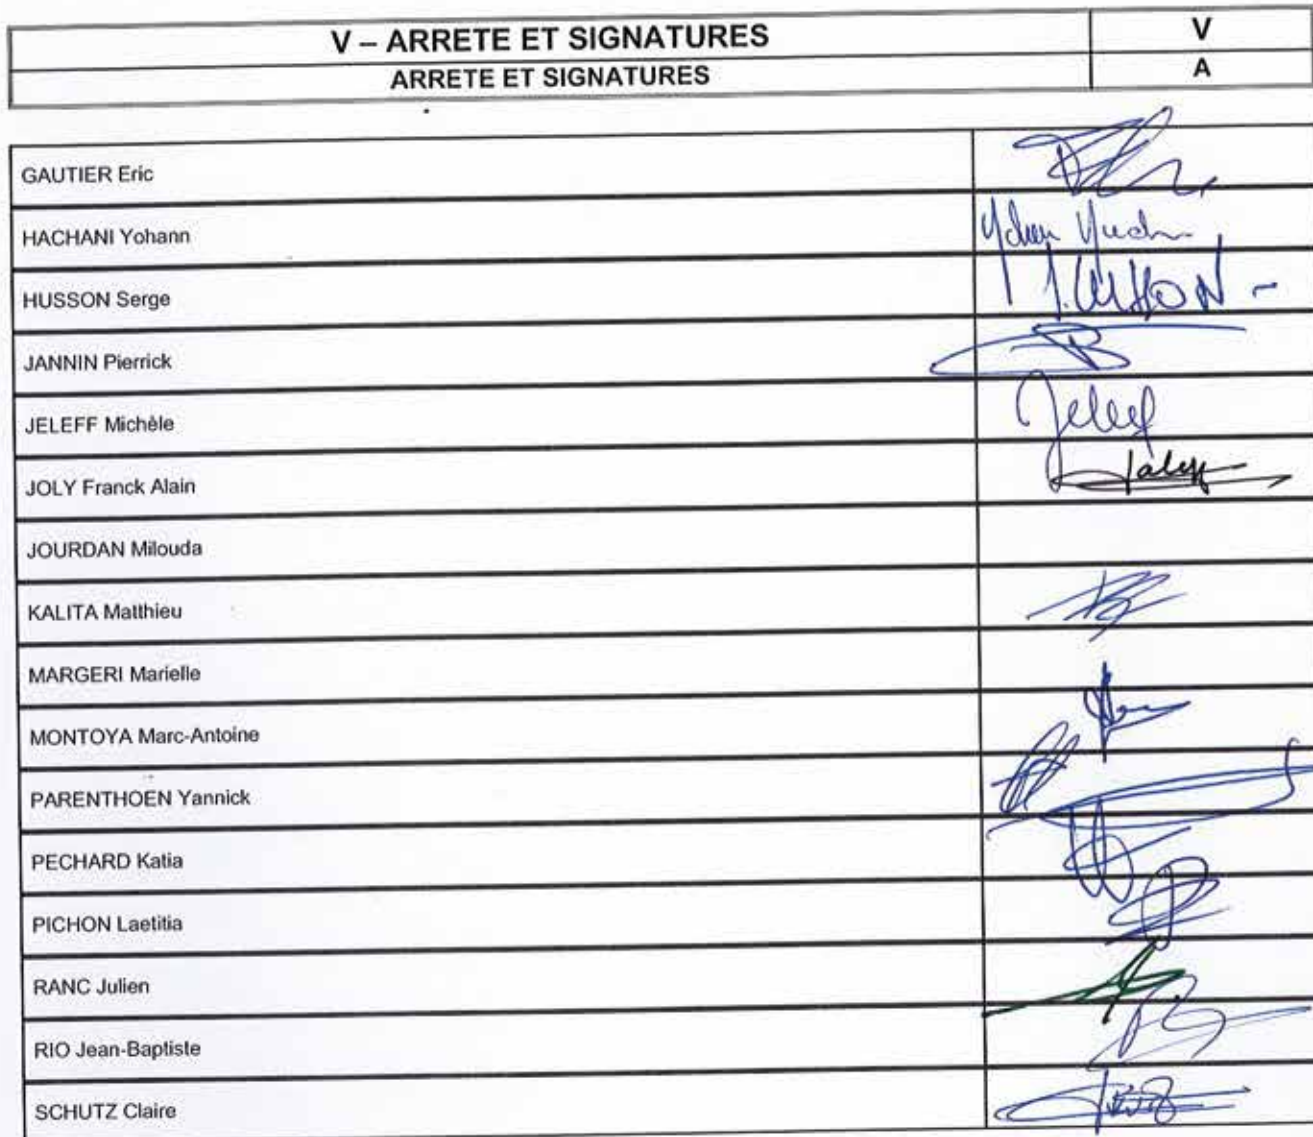 V – ARRETE ET SIGNATURES V
ARRETE ET SIGNATURES A
GAUTIER Eric
HACHANI Yohann
HUSSON Serge
JANNIN Pierrick
JELEFF Michèle
JOLY Franck Alain
JOURDAN Milouda
KALITA Matthieu
MARGERI Marielle
MONTOYA Marc-Antoine
PARENTHOEN Yannick
PECHARD Katia
PICHON Laetitia
RANC Julien
RIO Jean-Baptiste
SCHUTZ Claire